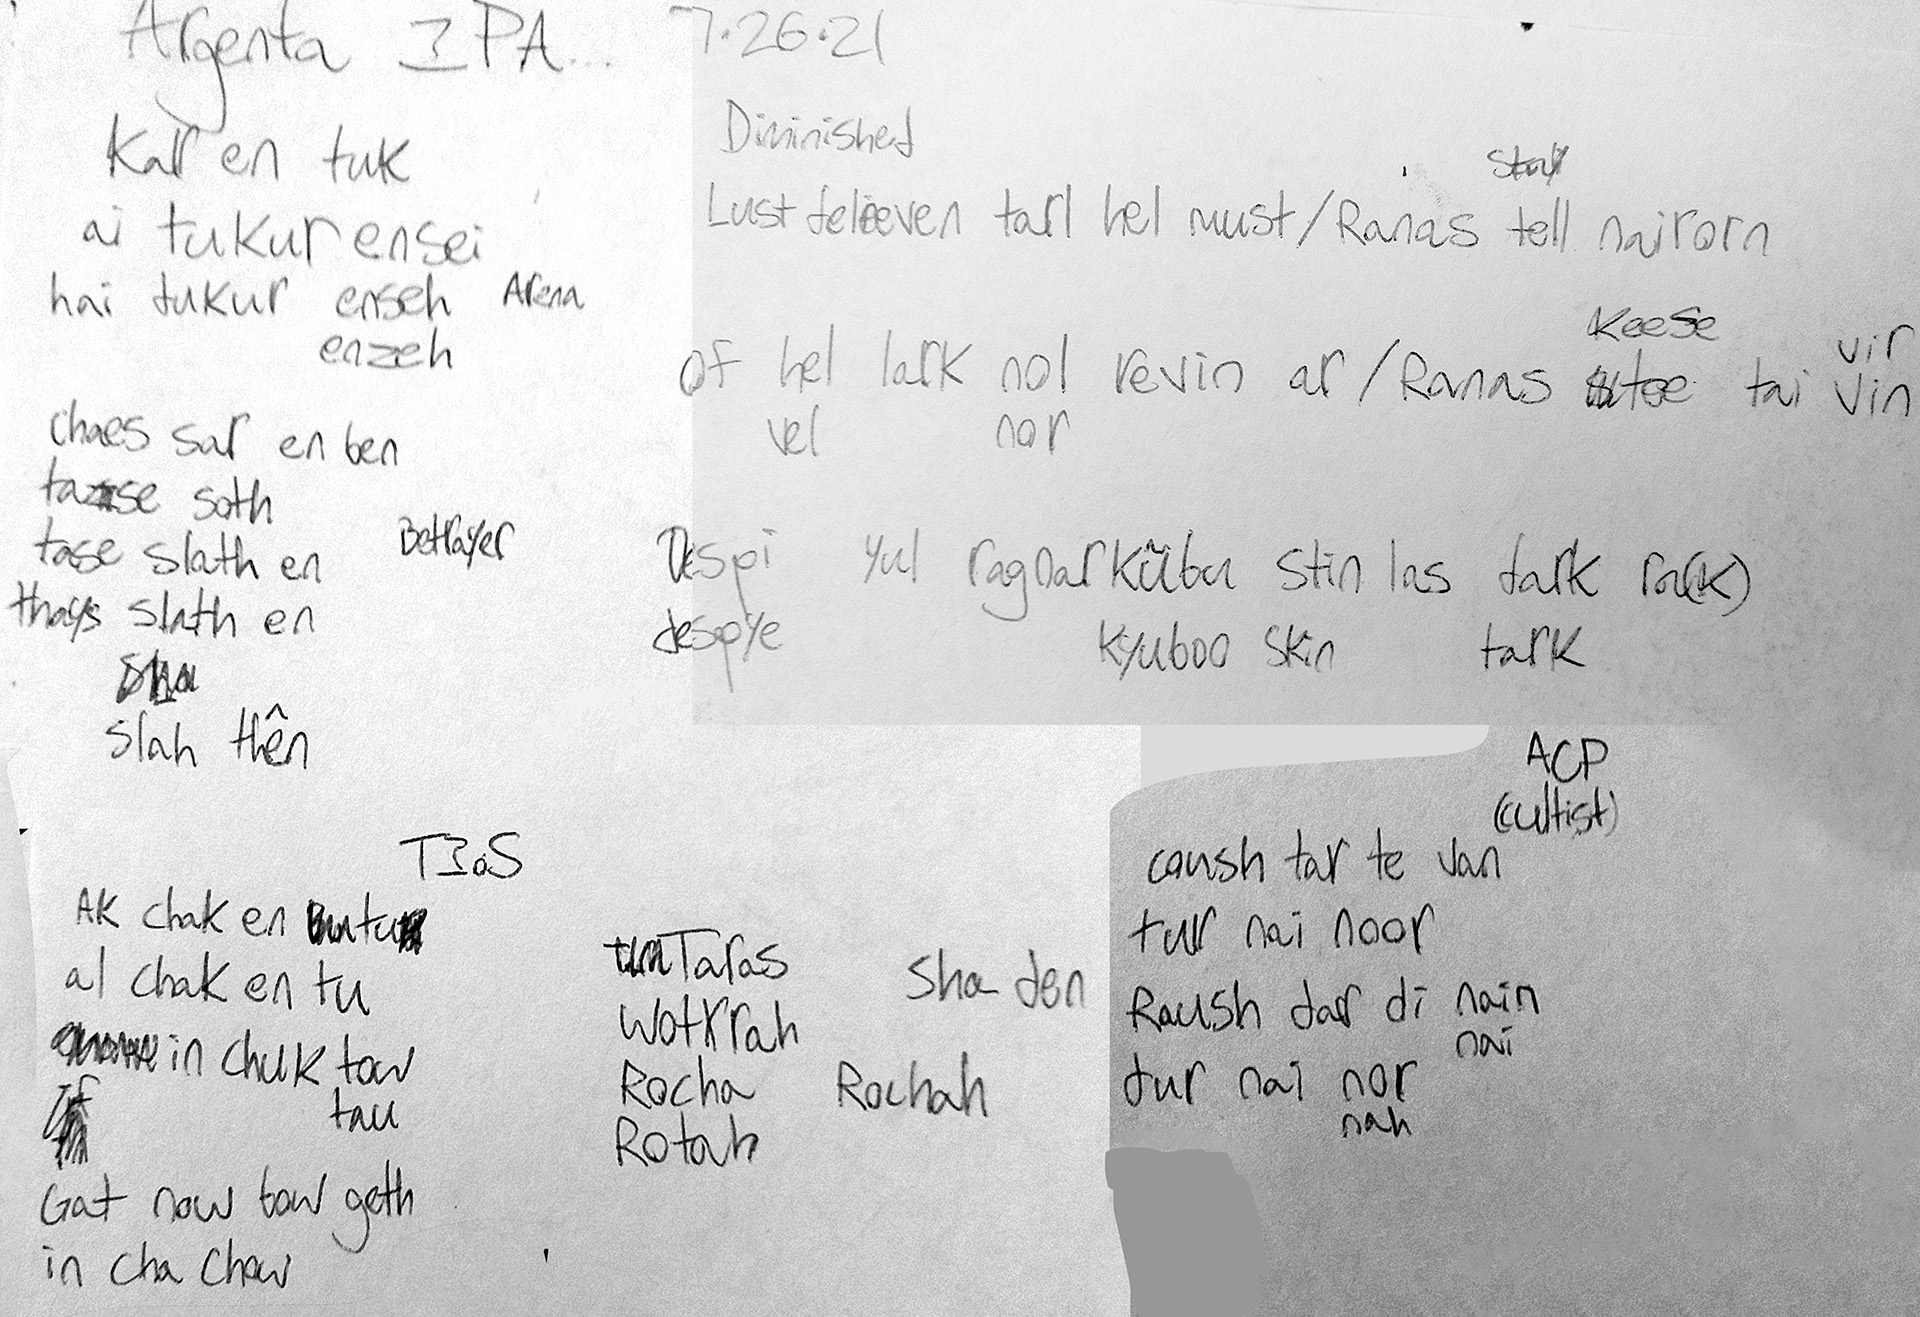 Argenta IPA... 7.26.21
Kar en tuk
ai tukur ensei
hai tukur enseh Arena
enzeh
chaes sar en ben
tase soth
tase slath en Betrayer
thays slath en
slah thên
Diminished
Lust deleeven tarl hel must/Ranas tell nairorn
of hel lark nol revin ar/Ranas tai vin
Keese vir
vel nor
Despi yul ragnar kūbu stin las dark ra(k)
despye kyuboo skin tark
TIoS
AK chak en
al chak en tu
in chuk tow
tau
Gat now tow geth
in cha chow
Taras
Wotkrah Sha den
Rocha Rochah
Rotah
ACP
(cultist)
caush tar te van
tur nai noor
Raush dar di nain
nai
dur nai nor
nah